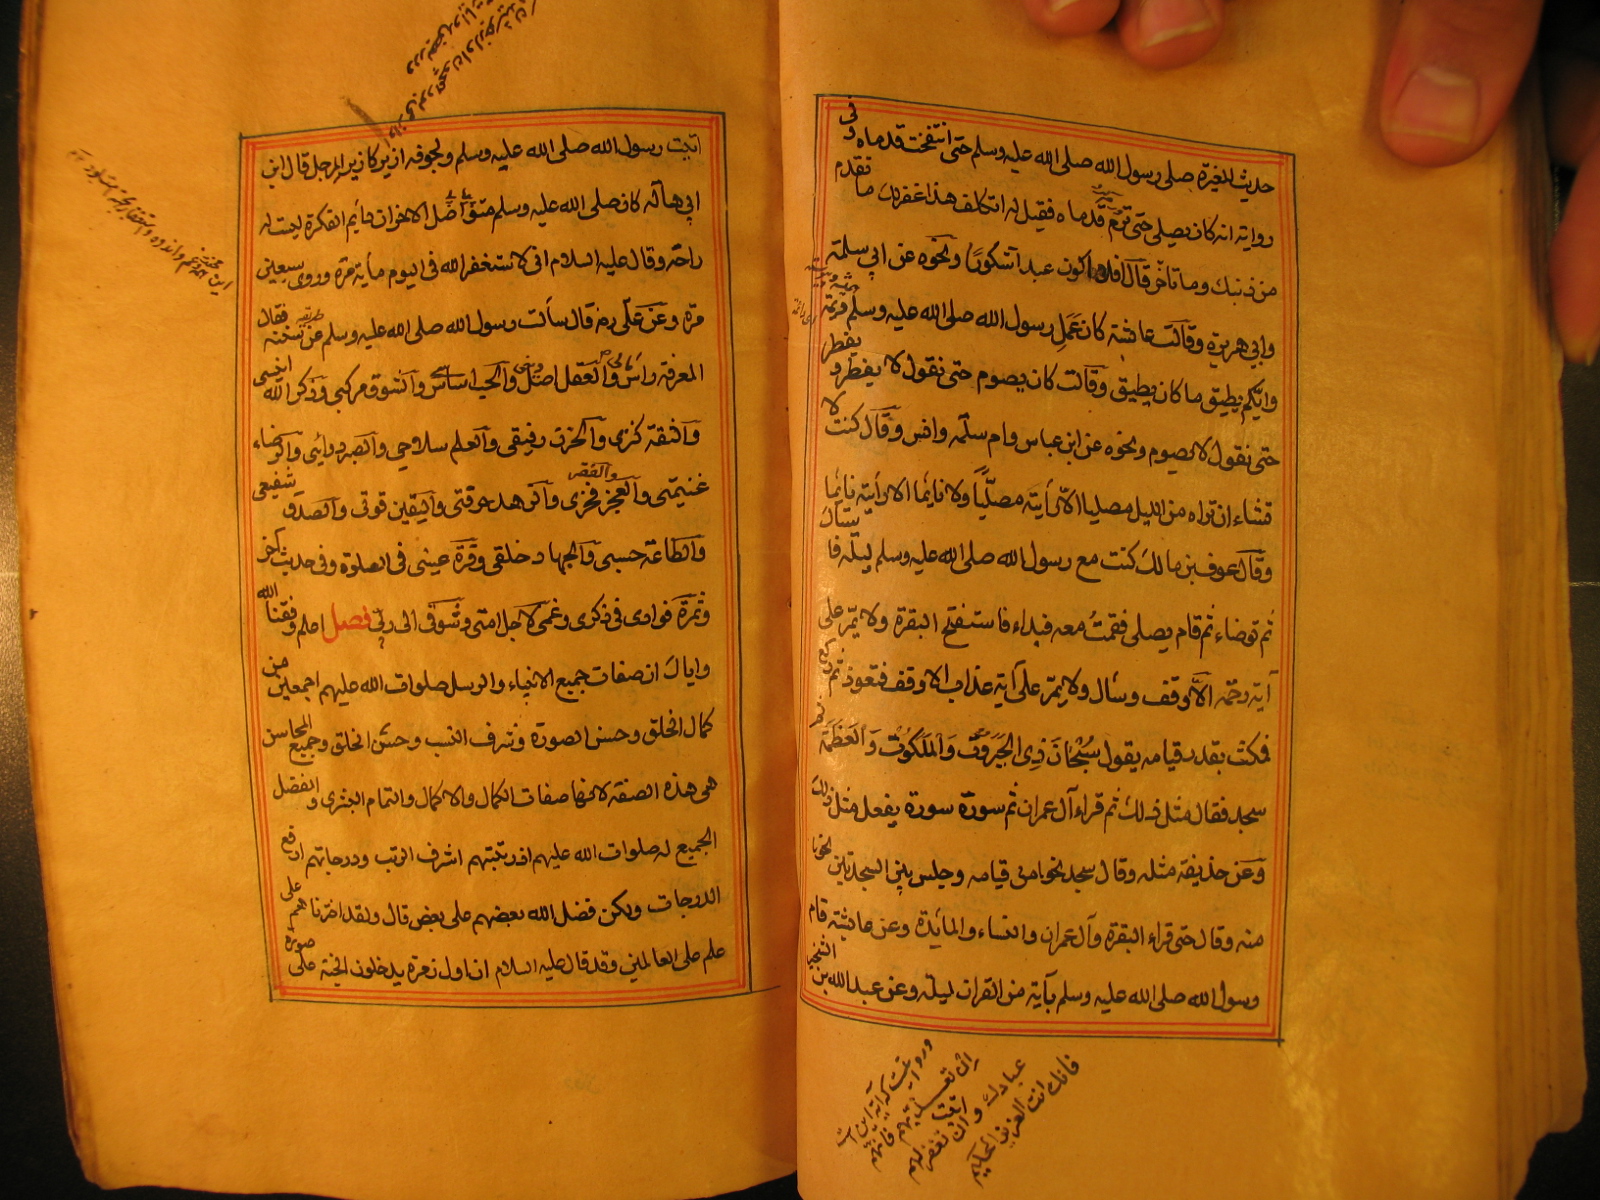 حديث المغيرة صلى رسول الله صلى الله عليه وسلم حتى انتفخت قدماه وفى
رواية انه كان يصلى حتى ترم قدماه فقيل له اتكلف هذا غفر لك ما تقدم
من ذنبك وما تاخر قال افلا اكون عبدا شكورا ونحوه عن ابى سلمة
وابى هريرة وقالت عائشة كان عمل رسول الله صلى الله عليه وسلم ديمة
وايكم يطيق ما كان يطيق وقالت كان يصوم حتى نقول لا يفطر ويفطر
حتى نقول لا يصوم ونحوه عن ابن عباس وام سلمة وانس وقال كنت لا
تشاء ان تراه من الليل مصليا الا رأيته مصليا ولا نايما الا رأيته نايما
وقال عوف بن مالك كنت مع رسول الله صلى الله عليه وسلم ليلة فاستاك
ثم توضاء ثم قام يصلى فقمت معه فبداء فاستفتح البقرة ولا يمر على
آية رحمة الا وقف وسأل ولا يمر على آية عذاب الا وقف فتعوذ ثم ركع
فمكث بقدر قيامه يقول سبحان ذى الجبروت والملكوت والعظمة ثم
سجد فقال مثل ذلك ثم قراء آل عمران ثم سورة سورة يفعل مثل ذلك
وعن حذيفة مثله وقال سجد نحوا من قيامه وجلس بين السجدتين نحوا
منه وقال حتى قراء البقرة وآل عمران والنساء والمائدة وعن عائشة قام
رسول الله صلى الله عليه وسلم بآية من القران ليلة وعن عبد الله بن الشخير
ان تعذبهم فانهم
عبادك وان تغفر لهم
فانك انت العزيز الحكيم
اتيت رسول الله صلى الله عليه وسلم ولجوفه ازيز كازيز المرجل قال ابن
ابى هالة كان صلى الله عليه وسلم متواصل الاحزان دايم الفكرة ليست له
راحة وقال عليه السلام انى لاستغفر الله فى اليوم مأية مرة وروى سبعين
مرة وعن على رض قال سألت رسول الله صلى الله عليه وسلم عن سنته فقال
المعرفة رأس مالى والعقل اصل دينى والحب اساسى والشوق مركبى وذكر الله انيسى
والثقة كنزى والحزن رفيقى والعلم سلاحى والصبر ردائى والرضاء
غنيمتى والعجز فخرى والزهد حرفتى واليقين قوتى والصدق شفيعى
والفقر
والطاعة حسبى والجهاد خلقى وقرة عينى فى الصلوة وفى حديث آخر
وثمرة فوادى فى ذكرى وغمى لاجل امتى وشوقى الى ربى فصل اعلم وفقنا الله
واياك ان صفات جميع الانبياء والرسل صلوات الله عليهم اجمعين من
كمال الخلق وحسن الصورة وشرف النسب وحسن الخلق وجميع المحاسن
هى هذه الصفة لانها صفات الكمال والاكمال والتمام البشرى والفضل
الجميع له صلوات الله عليهم اذ رتبتهم اشرف الرتب ودرجاتهم ارفع
الدرجات ولكن فضل الله بعضهم على بعض قال ولقد اخترناهم على
علم على العالمين وقد قال عليه السلام ان اول زمرة يدخلون الجنة على صورة